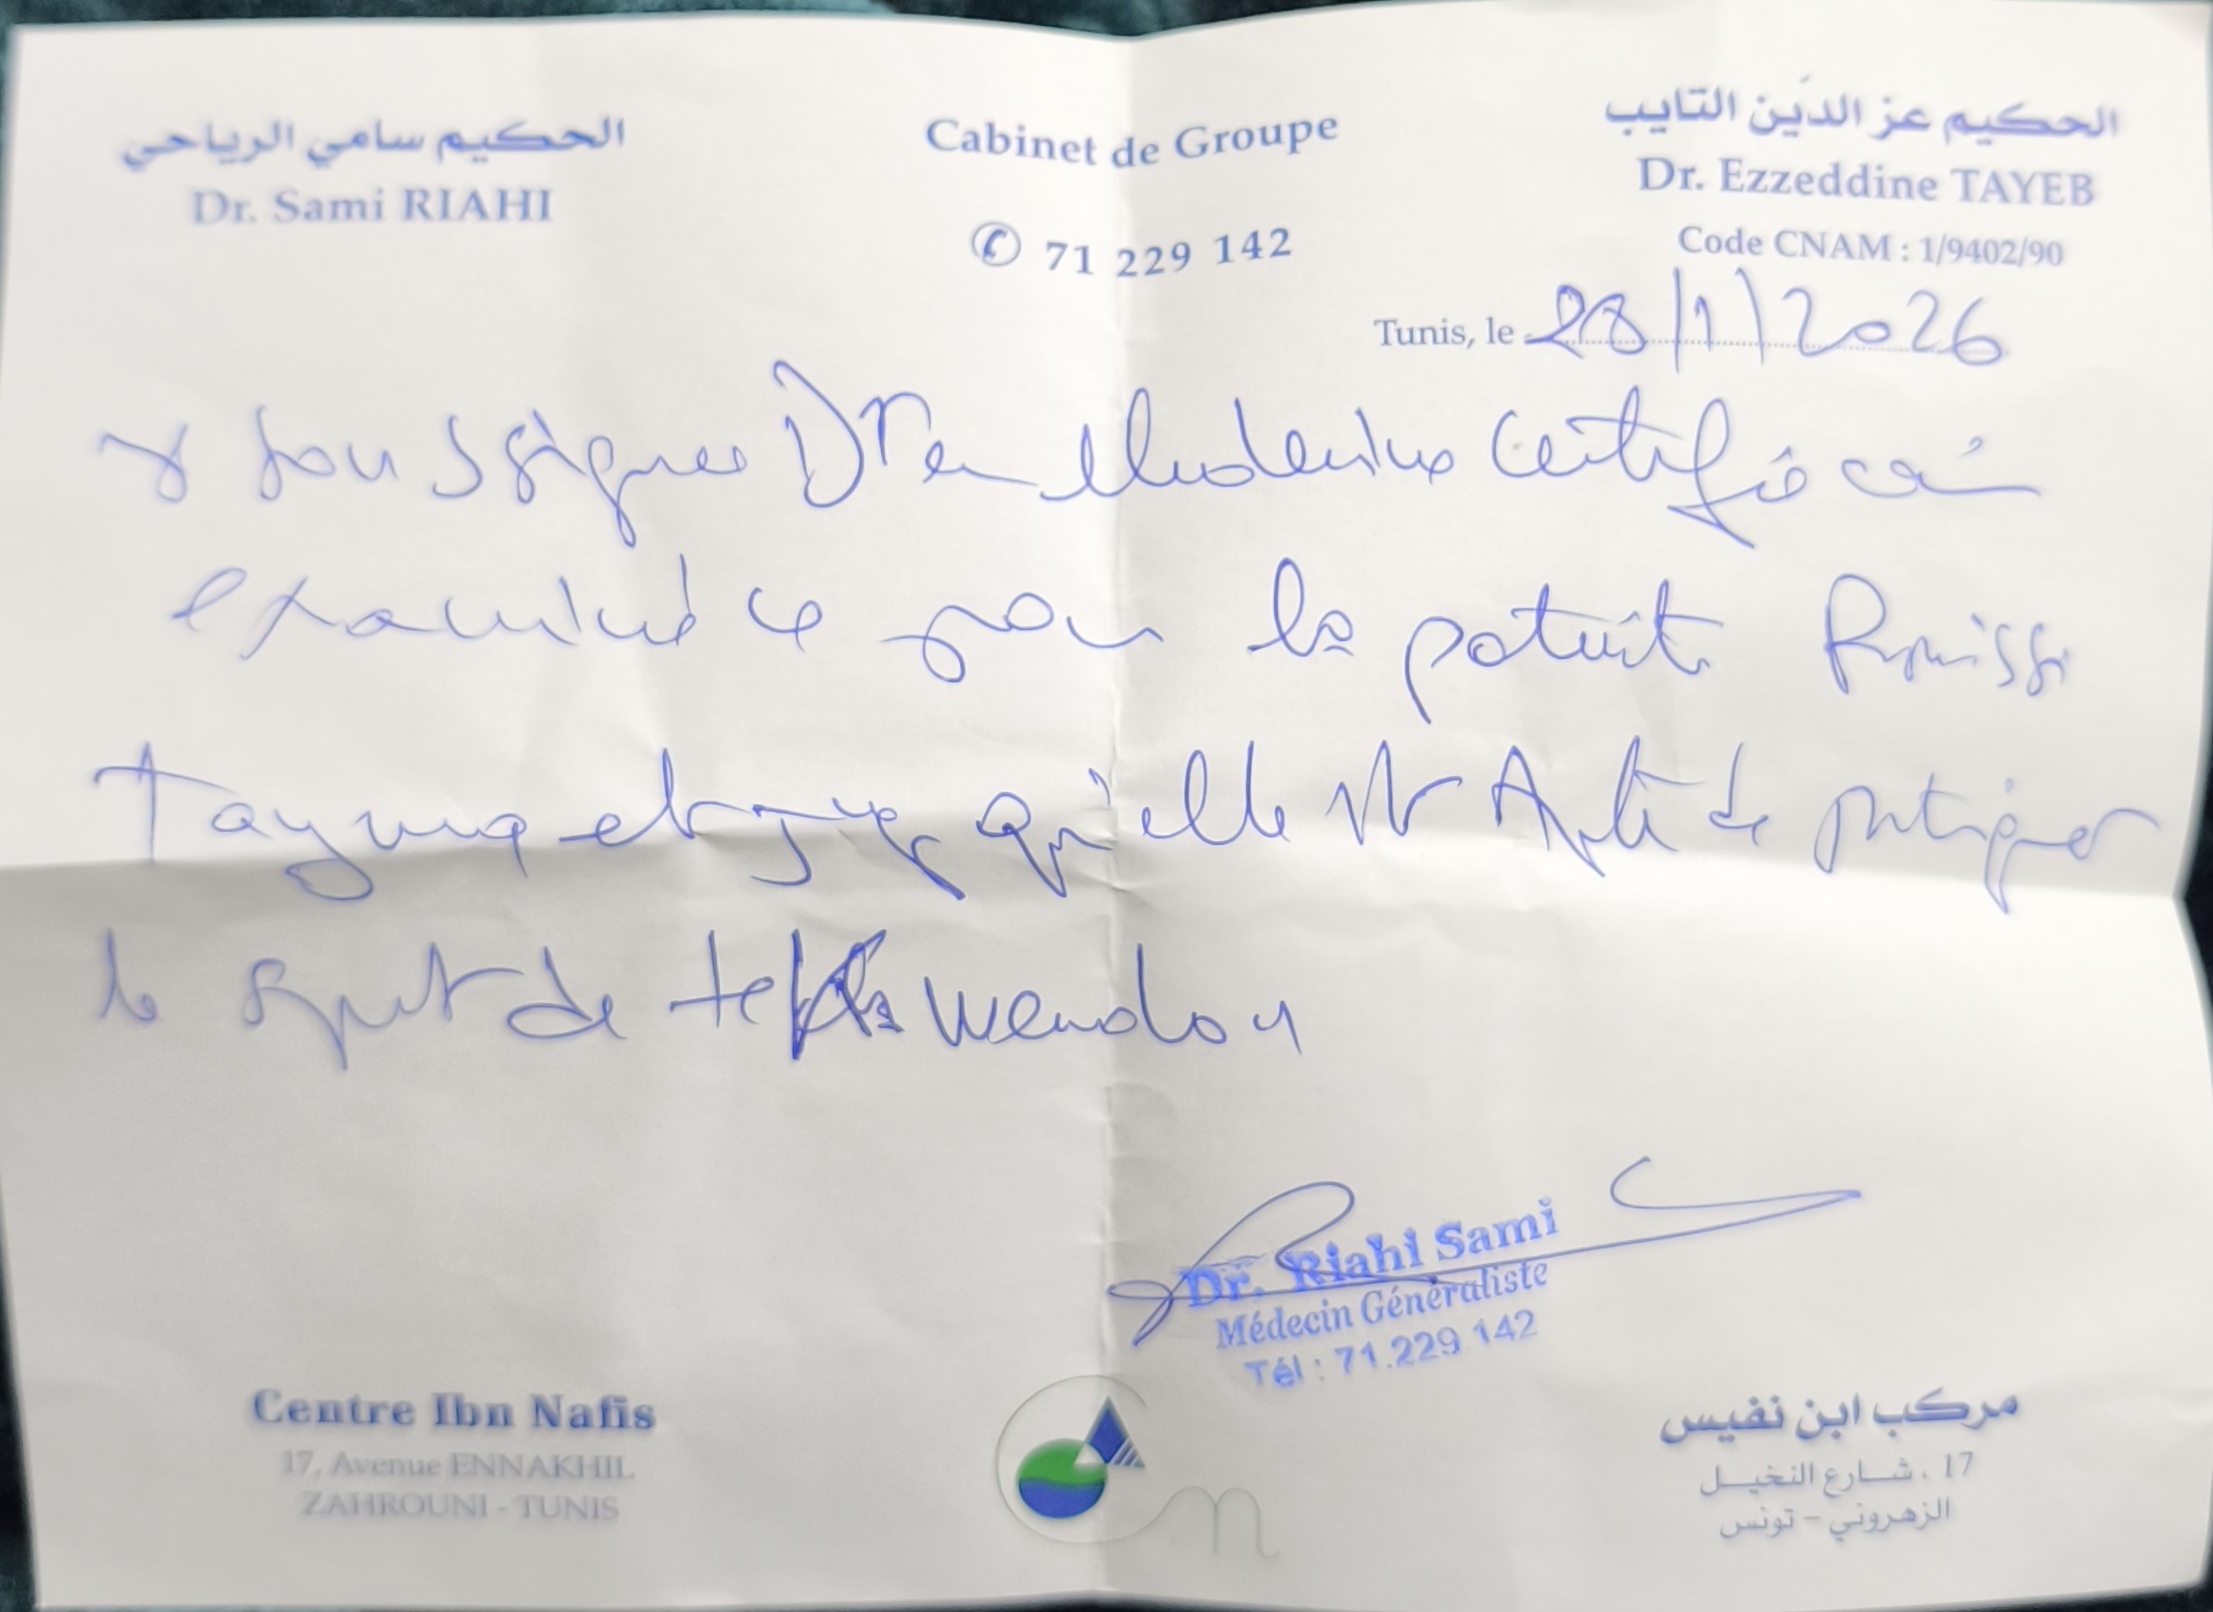 الحكيم سامي الرياحي
Dr. Sami RIAHI
Cabinet de Groupe
✆ 71 229 142
الحكيم عز الدين التايب
Dr. Ezzeddine TAYEB
Code CNAM : 1/9402/90
Tunis, le 28/1/2026
soussigné Dr en Médecine certifie avoir
examiné ce jour la patiente
qu'elle est Apte de pratiquer
le sport de
Dr. Riahi Sami
Médecin Généraliste
Tél : 71.229 142
Centre Ibn Nafis
17, Avenue ENNAKHIL
ZAHROUNI - TUNIS
مركب ابن نفيس
17 ، شارع النخيل
الزهروني - تونس